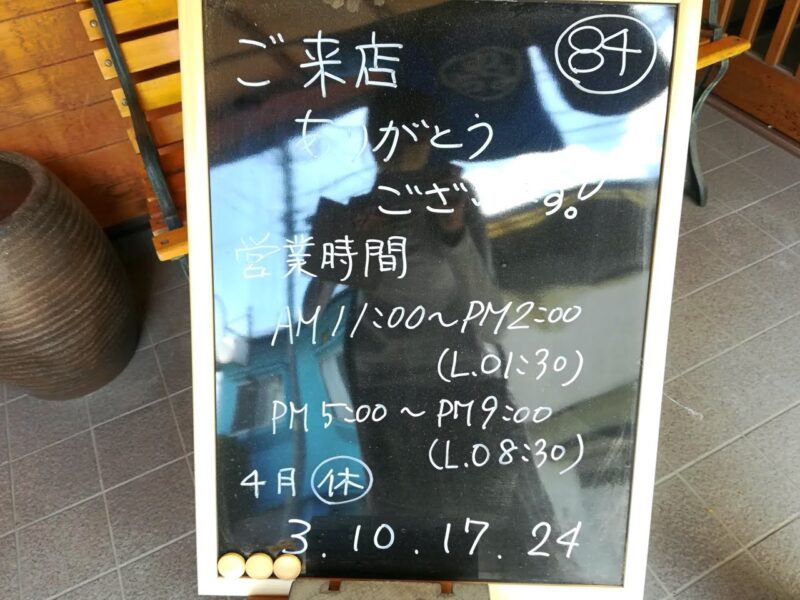 84
ご来店
ありがとう
ございます。
営業時間
AM11:00〜PM2:00
(L.O1:30)
PM5:00〜PM9:00
(L.O8:30)
4月 休
3.10.17.24